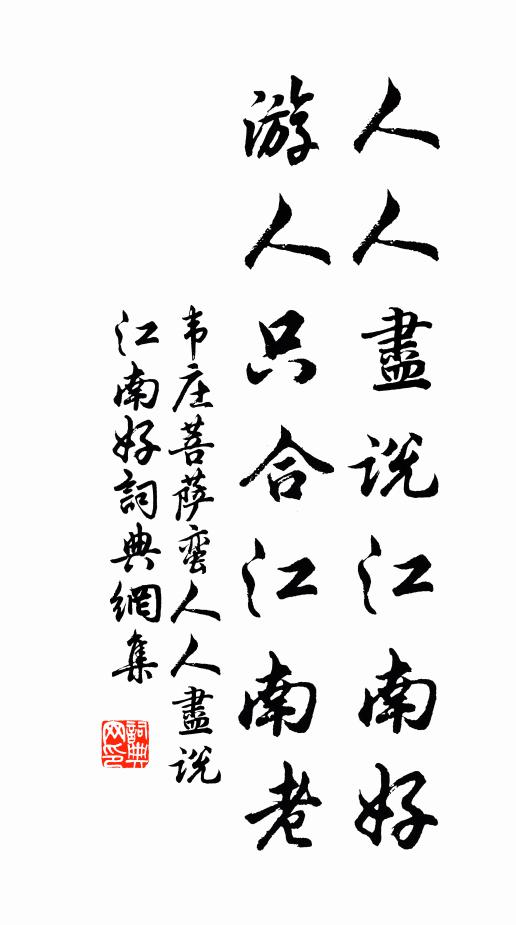 人人盡说江南好
游人只合江南老
韦庄菩萨蛮人人盡说
江南好詞典網集
詞典网印